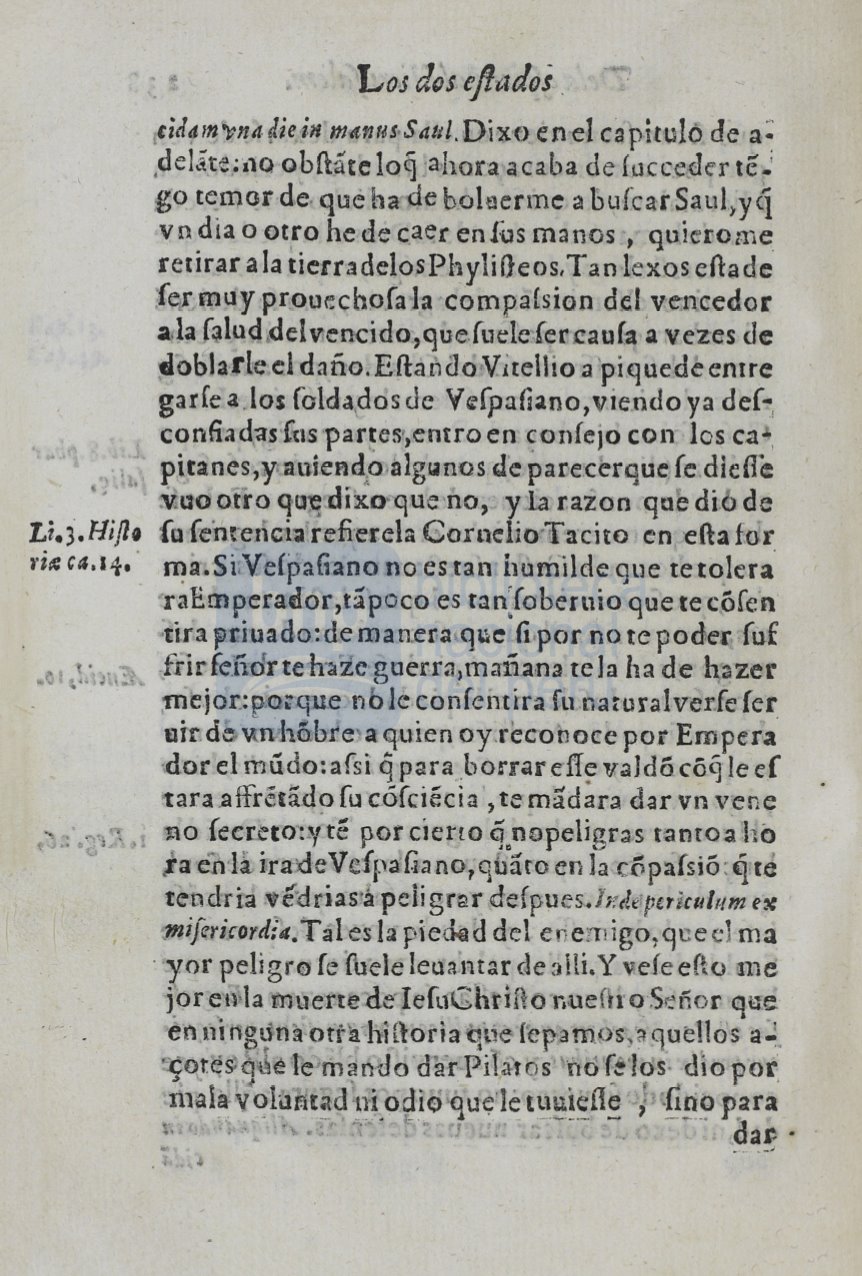 Los dos eſtados
cidam vna die in manus Saul. Dixo en el capitulo de a-
delãte: no obſtãte loq̃ ahora acaba de ſucceder tẽ-
go temor de que ha de boluerme a buſcar Saul, y q̃
vn dia o otro he de caer en ſus manos , quierome
retirar a la tierra delos Phyliſteos. Tan lexos eſta de
ſer muy prouechoſa la compaſsion del vencedor
a la ſalud del vencido, que ſuele ſer cauſa a vezes de
doblarle el daño. Eſtando Vitellio a pique de entre
garſe a los ſoldados de Veſpaſiano, viendo ya deſ-
confiadas ſus partes, entro en conſejo con los ca-
pitanes, y auiendo algunos de parecer que ſe dieſſe
vuo otro que dixo que no, y la razon que dio de
Li. 3. Hiſto
riæ ca. 14.
ſu ſentencia refierela Cornelio Tacito en eſta for
ma. Si Veſpaſiano no es tan humilde que te tolera
ra Emperador, tãpoco es tan ſoberuio que te cõſen
tira priuado: de manera que ſi por no te poder ſuf
frir ſeñor te haze guerra, mañana te la ha de hazer
mejor: porque no le conſentira ſu natural verſe ſer
uir de vn hõbre a quien oy reconoce por Empera
dor el mũdo: aſsi q̃ para borrar eſſe valdõ cõq̃ le eſ
tara affrẽtãdo ſu cõſciẽcia , te mãdara dar vn vene
no ſecreto: y tẽ por cierto q̃ no peligras tanto aho
ra en la ira de Veſpaſiano, quãto en la cõpaſsiõ q̃ te
tendria vẽdrias a peligrar deſpues. Inde periculum ex
miſericordia. Tal es la piedad del enemigo, que el ma
yor peligro ſe ſuele leuantar de alli. Y veſe eſto me
jor en la muerte de Ieſu Chriſto nueſtro Señor que
en ninguna otra hiſtoria que ſepamos, aquellos a-
çotes que le mando dar Pilatos no ſe los dio por
mala voluntad ni odio que le tuuieſſe , ſino para
dar